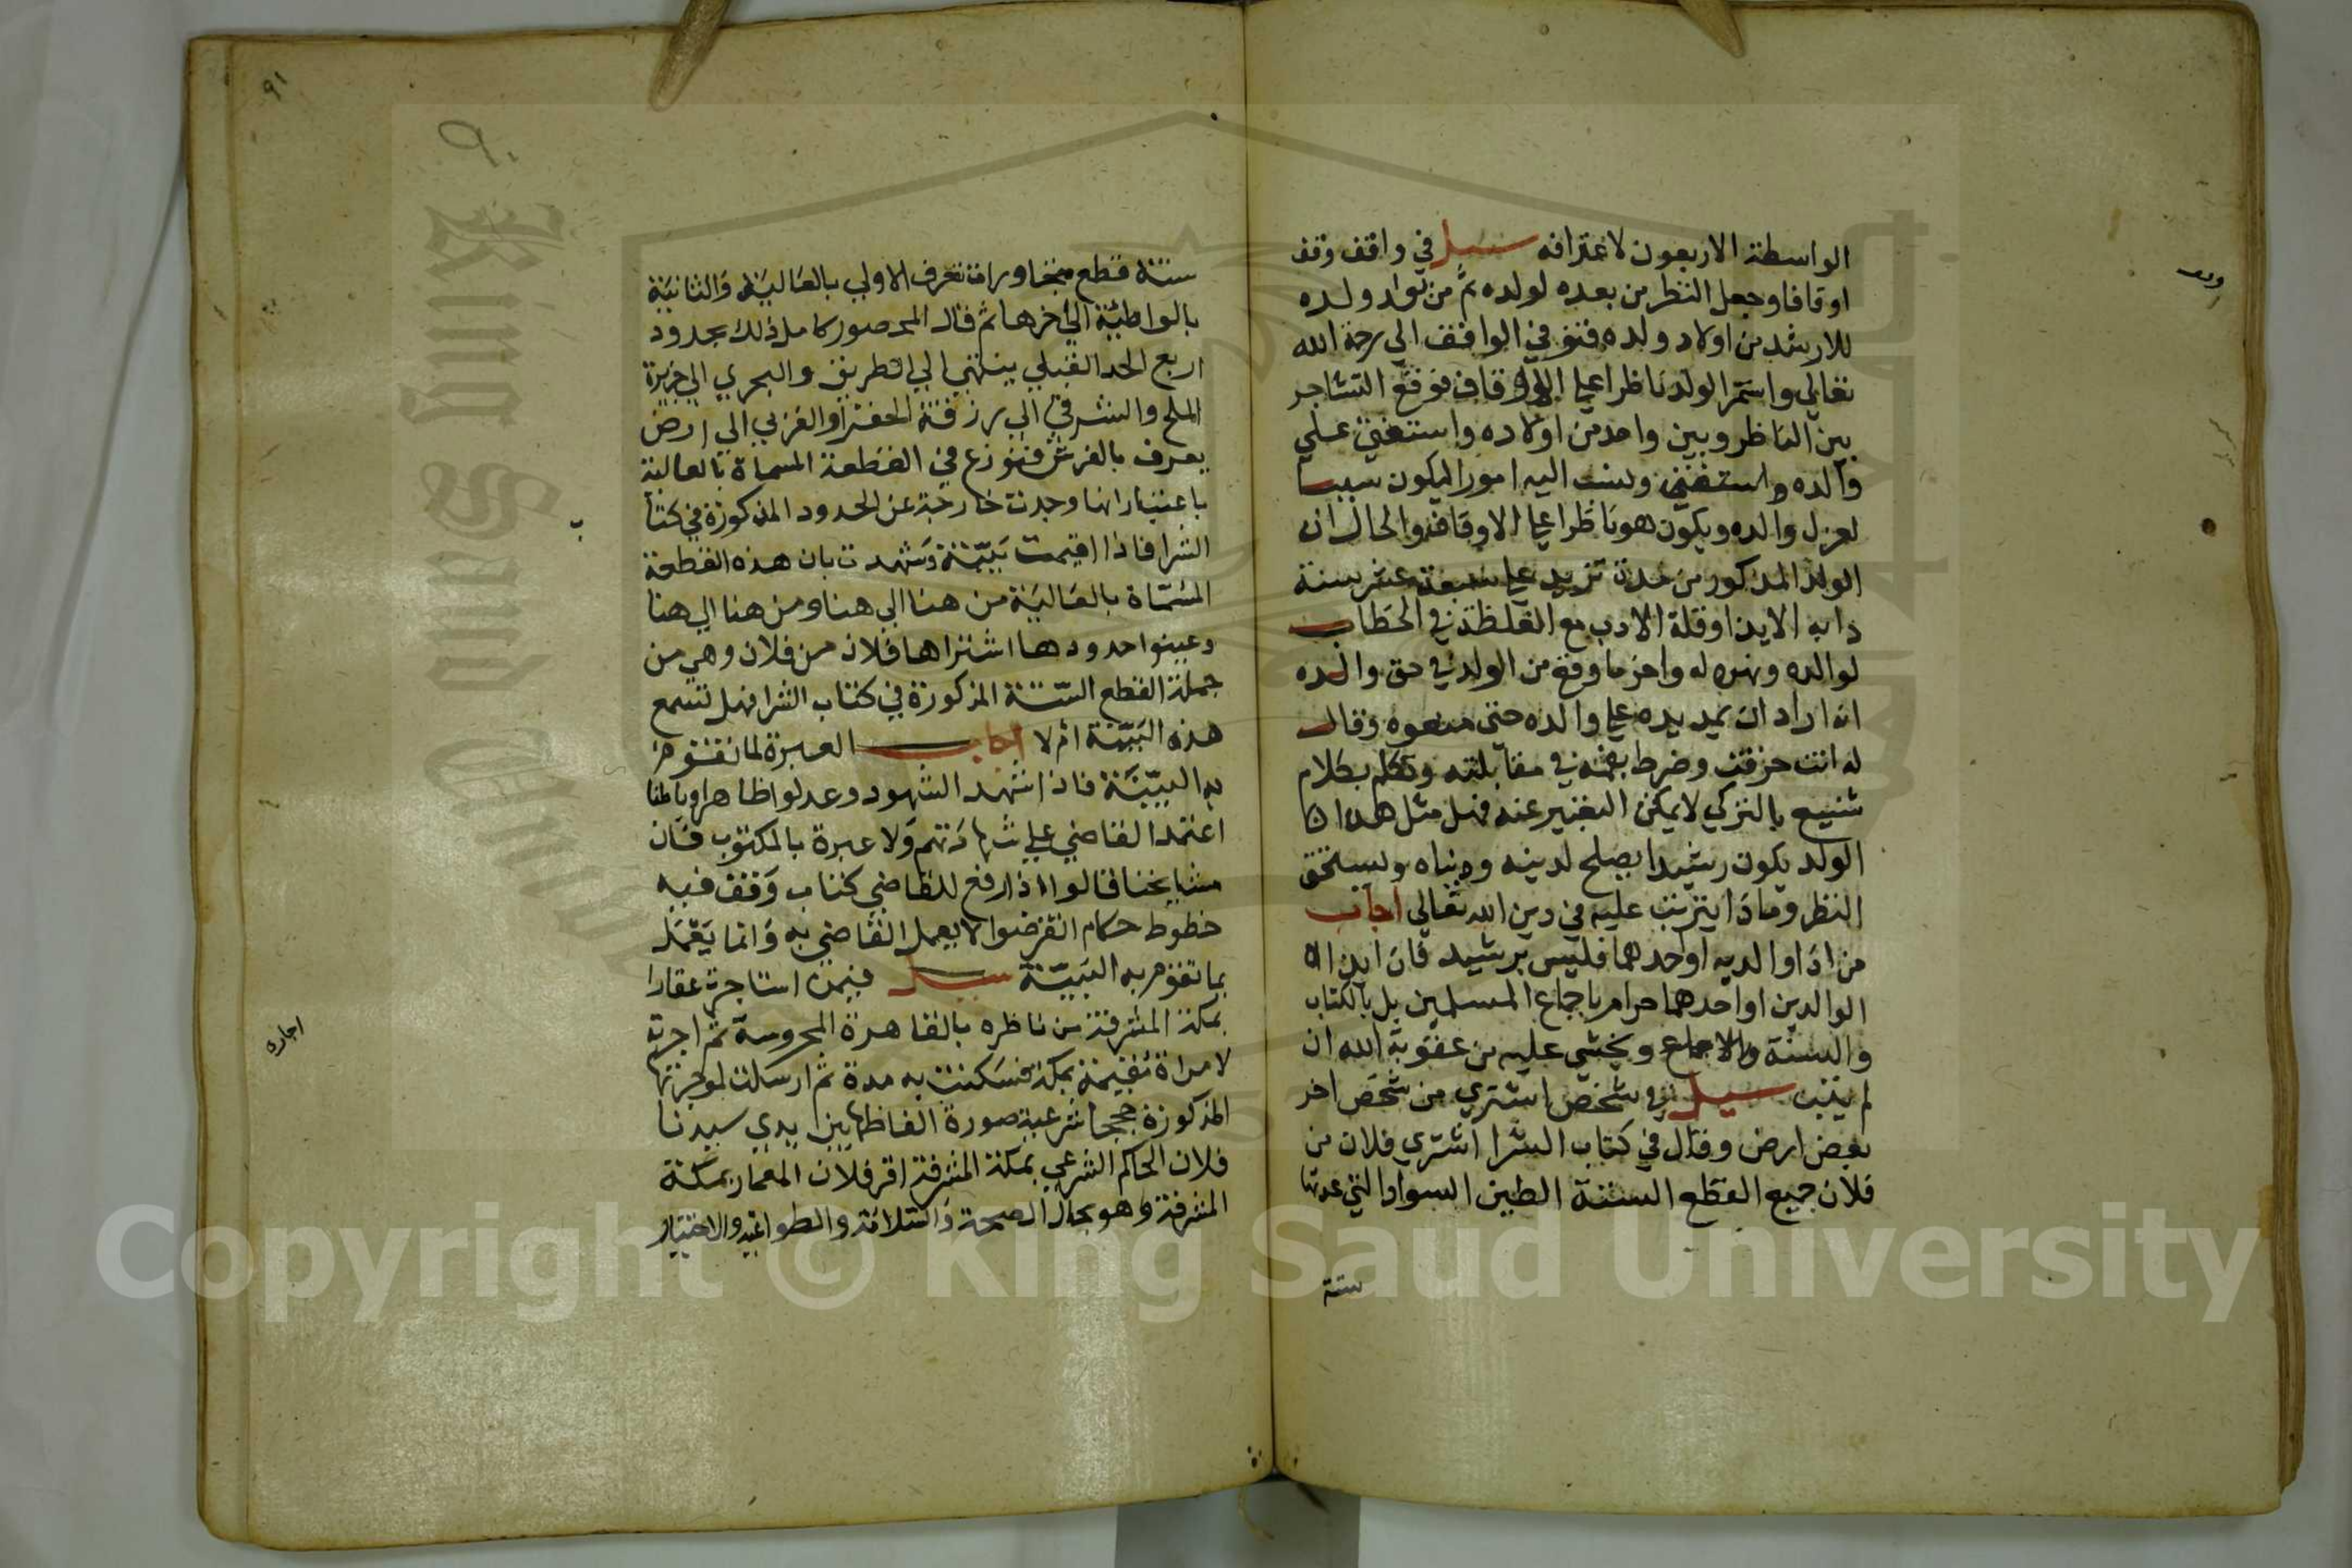 الواسطة الاربعون لاعترافه سيل في واقف وقف
اوقافا وجعل النظر من بعده لولده ثم من تولد ولده
للارشد من اولاد ولده فتوفي الواقف الي رحمة الله
تعالي واستمر الولد ناظرا علي الاوقاف فوقع التشاجر
بين الناظر وبين واحد من اولاده واستغني علي
والده واستفتي ونسب اليه امورا ليكون سببا
لعزل والده ويكون هو ناظرا علي الاوقاف والحال ان
الولد المذكور من مدة تزيد علي سبعة عشر سنة
دابه الايذا وقلة الادب مع الغلظة في الخطاب
لوالده ونهره له واخر ما وقع من الولد في حق والده
انه اراد ان يمد يده علي والده حتي منعوه وقال
له انت خرفت وضرط بفمه في مقابلته وتكلم بكلام
شنيع بالتركي لا يمكن التعبير عنه فهل مثل هذا
الولد يكون رشيدا يصلح لدينه ودنياه ويستحق
النظر وماذا يترتب عليه في دين الله تعالي اجاب
من اذا والديه او احدهما فليس برشيد فان ايذا
الوالدين او احدهما حرام باجماع المسلمين بل بالكتاب
والسنة والاجماع ويخشي عليه من عقوبة الله ان
لم يتب سيل في شخص اشتري من شخص اخر
بعض ارض وقال في كتاب الشرا اشتري فلان من
فلان جميع القطع الستة الطين السواد التي عدتها
ستة
ستة قطع متجاورات تعرف الاولي بالعالية والثانية
بالواطية الي اخرها ثم قال المحصور كامل ذلك بحدود
اربع الحد القبلي ينتهي الي الطريق والبحري الي جزيرة
الملح والشرقي الي رزقة الحفرا والغربي الي ارض
يعرف بالفرش فتنوزع في القطعة المسماة بالعالية
باعتبار انها وجدت خارجة عن الحدود المذكورة في كتاب
الشرا فاذا اقيمت بينة وشهدت بان هذه القطعة
المسماة بالعالية من هنا الي هنا ومن هنا الي هنا
وعينوا حدودها اشتراها فلان من فلان وهي من
جملة القطع الستة المذكورة في كتاب الشرا فهل تسمع
هذه البينة ام لا اجاب العبرة لما تقوم
به البينة فاذا شهد الشهود وعدلوا ظاهرا وباطنا
اعتمد القاضي علي شهادتهم ولا عبرة بالمكتوب فان
مشايخنا قالوا اذا رفع للقاضي كتاب وقف فيه
خطوط حكام انقرضوا لا يعمل القاضي به وانما يعمل
بما تقوم به البينة سيل فيمن استاجرت عقارا
بمكة المشرفة من ناظره بالقاهرة المحروسة ثم اجرته
لامراة مقيمة بمكة فسكنت به مدة ثم ارسلت لموجرتها
المذكورة حججا شرعية صورة الفاظها بين ايدي سيدنا
فلان الحاكم الشرعي بمكة المشرفة اقر فلان المعمار بمكة
المشرفة وهو بحال الصحة والسلامة والطواعية والاختيار
اجاره
٩١
٩٠
King Saud University
Copyright © King Saud University